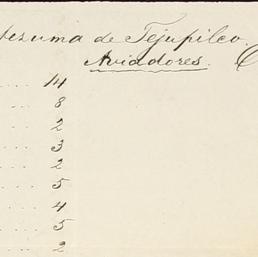 tezuma de Tejupilco.
Aviadores.
14
8
2
3
2
5
4
5
2